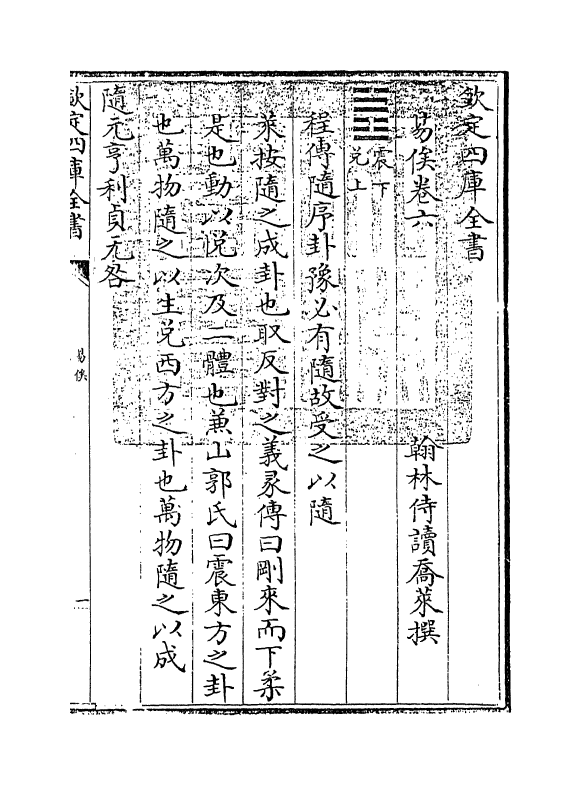 欽定四庫全書
易俟卷六
翰林侍讀喬萊撰
䷐
震下
兌上
程傳隨序卦豫必有隨故受之以隨
萊按隨之成卦也取反對之義彖傳曰剛來而下柔
是也動以悅次及二體也兼山郭氏曰震東方之卦
也萬物隨之以生兌西方之卦也萬物隨之以成
隨元亨利貞无咎
欽定四庫全書
易俟
一